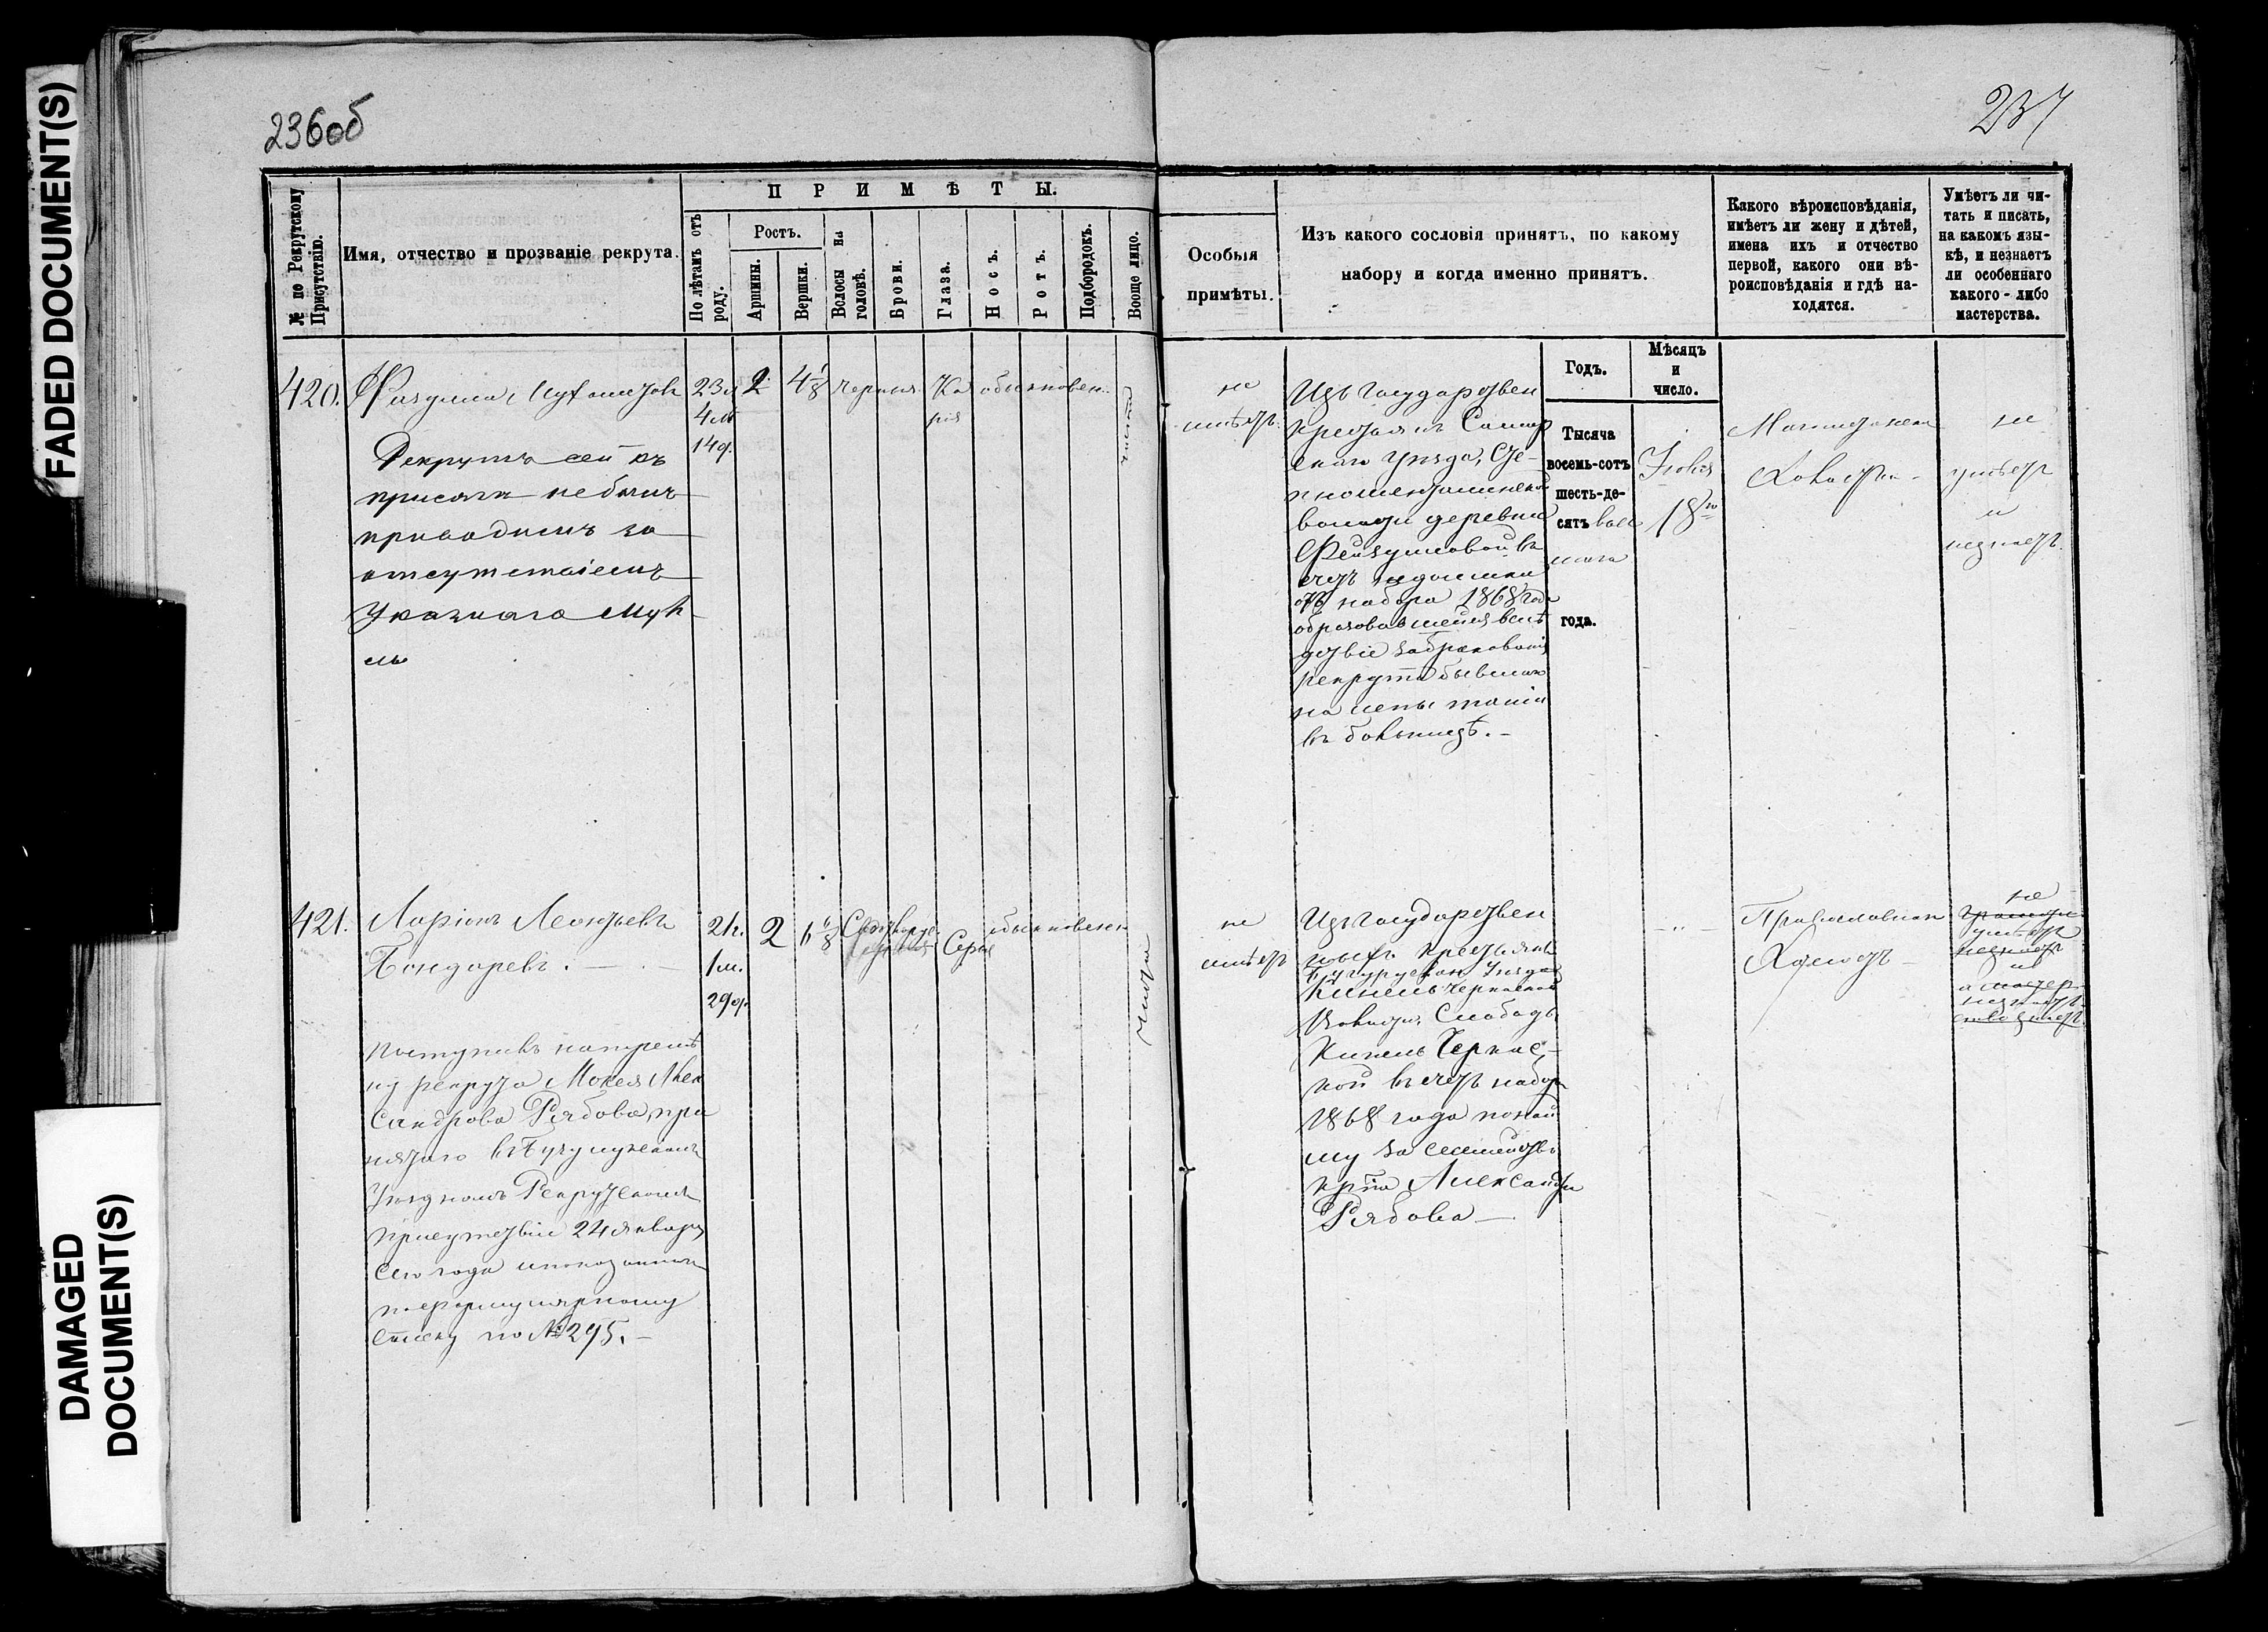 FADED DOCUMENT(S)
DAMAGED
DOCUMENT(S)
236об
237
№ по Рекрутскому
Присутствію.
Имя, отчество и прозваніе рекрута.
ПРИМѢТЫ.
По лѣтамъ отъ
роду.
Ростъ.
Аршины.
Вершки.
Волосы на
головѣ.
Брови.
Глаза.
Носъ.
Ротъ.
Подбородокъ.
Вообще лицо.
Особыя
примѣты.
Изъ какого сословія принятъ, по какому
набору и когда именно принятъ.
Какого вѣроисповѣданія,
имѣетъ ли жену и дѣтей,
имена ихъ и отчество
первой, какого они вѣ-
роисповѣданія и гдѣ на-
ходятся.
Умѣетъ ли чи-
тать и писать,
на какомъ язы-
кѣ, и незнаетъ
ли особеннаго
какого-либо
мастерства.
Годъ.
Мѣсяцъ
и
число.
420.
Рекрутъ сей къ
присяги небылъ
приводимъ за
отсутствіемъ
Указнаго Мул-
лы
23л
4м
14д.
2
4 1/8
черныя
Ка
рія
обыкновен.
чистое
не
имѣетъ
Изъ Государствен
крестьянъ Самар
скаго Уѣзда,
волости деревни
въ
счетъ недоимки
отъ набора 1868 года
образовавшейся вслѣ
дствіе забракованія
рекрута бывшаго
на испытаніи
въ больницѣ. –
Тысяча
восемь-сотъ
шесть-де-
сятъ вось
маго
года.
Іюля
18го
Магометанска
Холостъ –
не
умѣетъ
и
незнаетъ.
421.
Ларіонъ Леонтьевъ
Бондаревъ. –
поступилъ напремѣ
ну рекрута Мокея Алек
сандрова Рябова, при
нятаго въ Бугульминскомъ
Уѣздномъ Рекрутскомъ
присутствіи 24 января
сего года и показаннаго
по формулярному
списку по № 295. –
21г.
1м.
29д.
2
6 6/8
Серые
обыкновенн
чистое
не
имѣетъ
Изъ Государствен
ныхъ крестьянъ
Бугуруслан Уѣзда
Кинель Черкаской
Волости, Слободы
Кинель Черкас-
кой въ счетъ набора
1868 года по най
му за семейство
кр–на Александра
Рябова –
– „ –
Православнаго
Холостъ –
не
умѣетъ
и
незнаетъ.